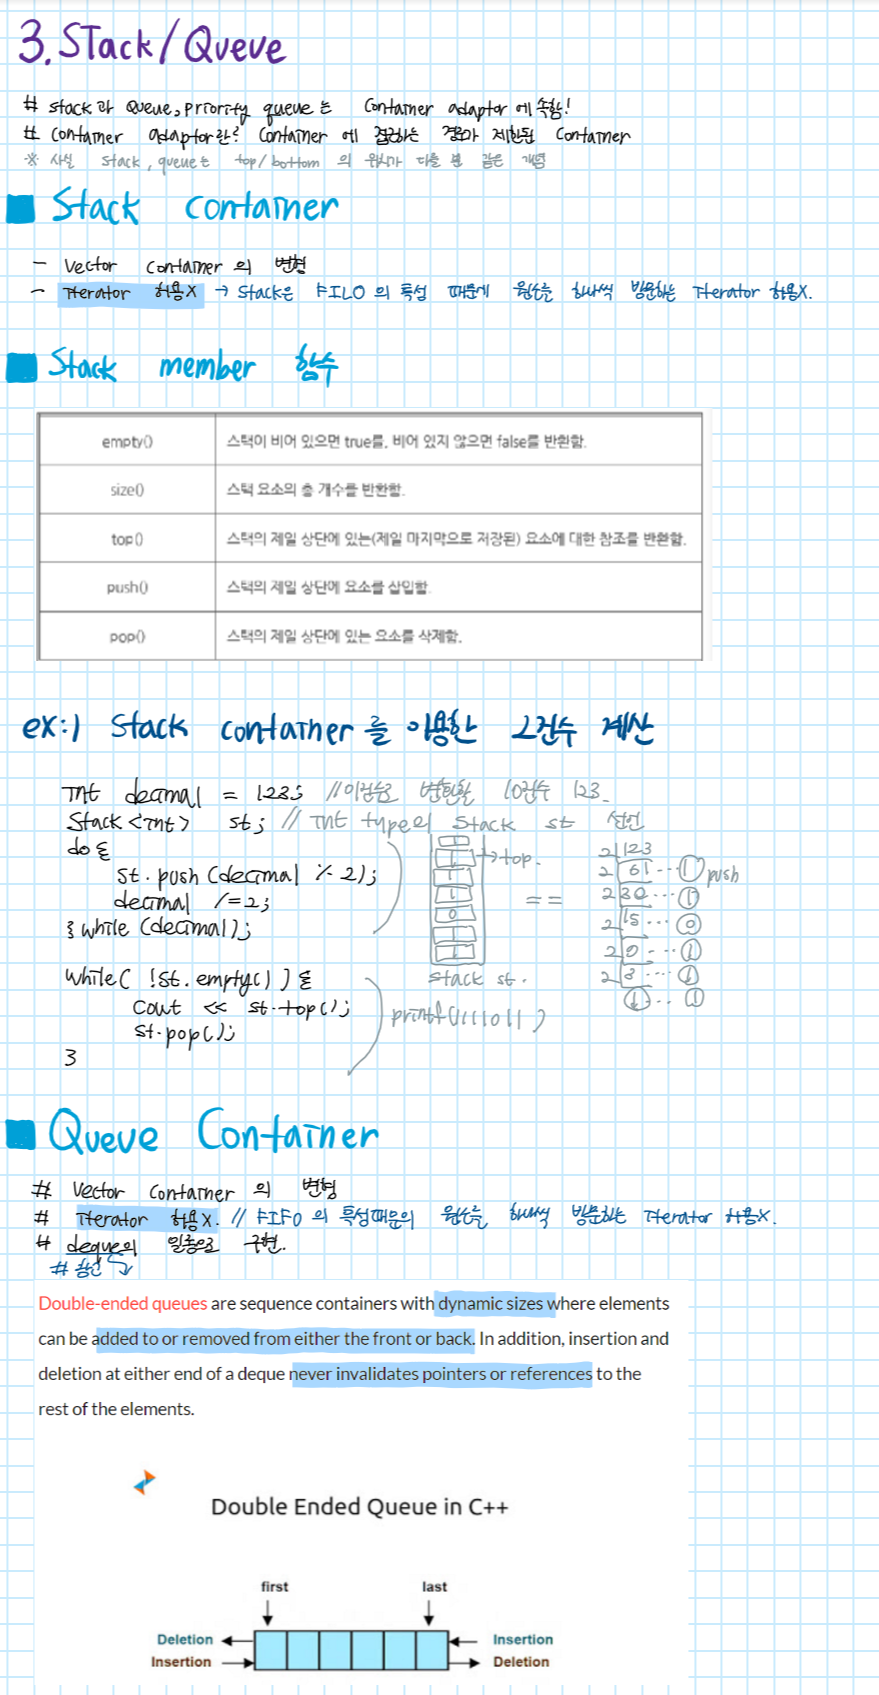 3. Stack/Queue
# stack과 Queue, Priority queue는 Container adaptor에 속함!
# Container adaptor란? Container에 접근하는 경로가 제한된 Container
※ 사실 Stack, queue는 top/bottom의 위치가 다를 뿐 같은 개념
Stack container
- Vector container의 변형
- Iterator 허용X → Stack은 FILO의 특성 때문에 원소를 하나씩 방문하는 Iterator 허용X.
Stack member 함수
empty() 스택이 비어 있으면 true를, 비어 있지 않으면 false를 반환함.
size() 스택 요소의 총 개수를 반환함.
top() 스택의 제일 상단에 있는(제일 마지막으로 저장된) 요소에 대한 참조를 반환함.
push() 스택의 제일 상단에 요소를 삽입함.
pop() 스택의 제일 상단에 있는 요소를 삭제함.
ex:) Stack container를 이용한 2진수 계산
int decimal = 123; //이진수로 변환할 10진수 123.
Stack <int> st; // Int type의 Stack st 선언
do {
st.push (decimal % 2);
decimal /=2;
} while (decimal);
while( !st.empty() ) {
Cout << st.top();
st.pop();
}
1
1
1
1
0
1
1
→ top.
Stack st.
==
2 123
2 61 ... 1 push
2 30 ... 1
2 15 ... 0
2 7 ... 1
2 3 ... 1
1 ... 1
printf(1111011)
Queue Container
# Vector Container의 변형
# Iterator 허용X. // FIFO의 특성때문의 원소를 하나씩 방문하는 Iterator 허용X.
# deque의 일종으로 구현.
# 참고
Double-ended queues are sequence containers with dynamic sizes where elements
can be added to or removed from either the front or back. In addition, insertion and
deletion at either end of a deque never invalidates pointers or references to the
rest of the elements.
Double Ended Queue in C++
first last
Deletion Insertion
Insertion Deletion